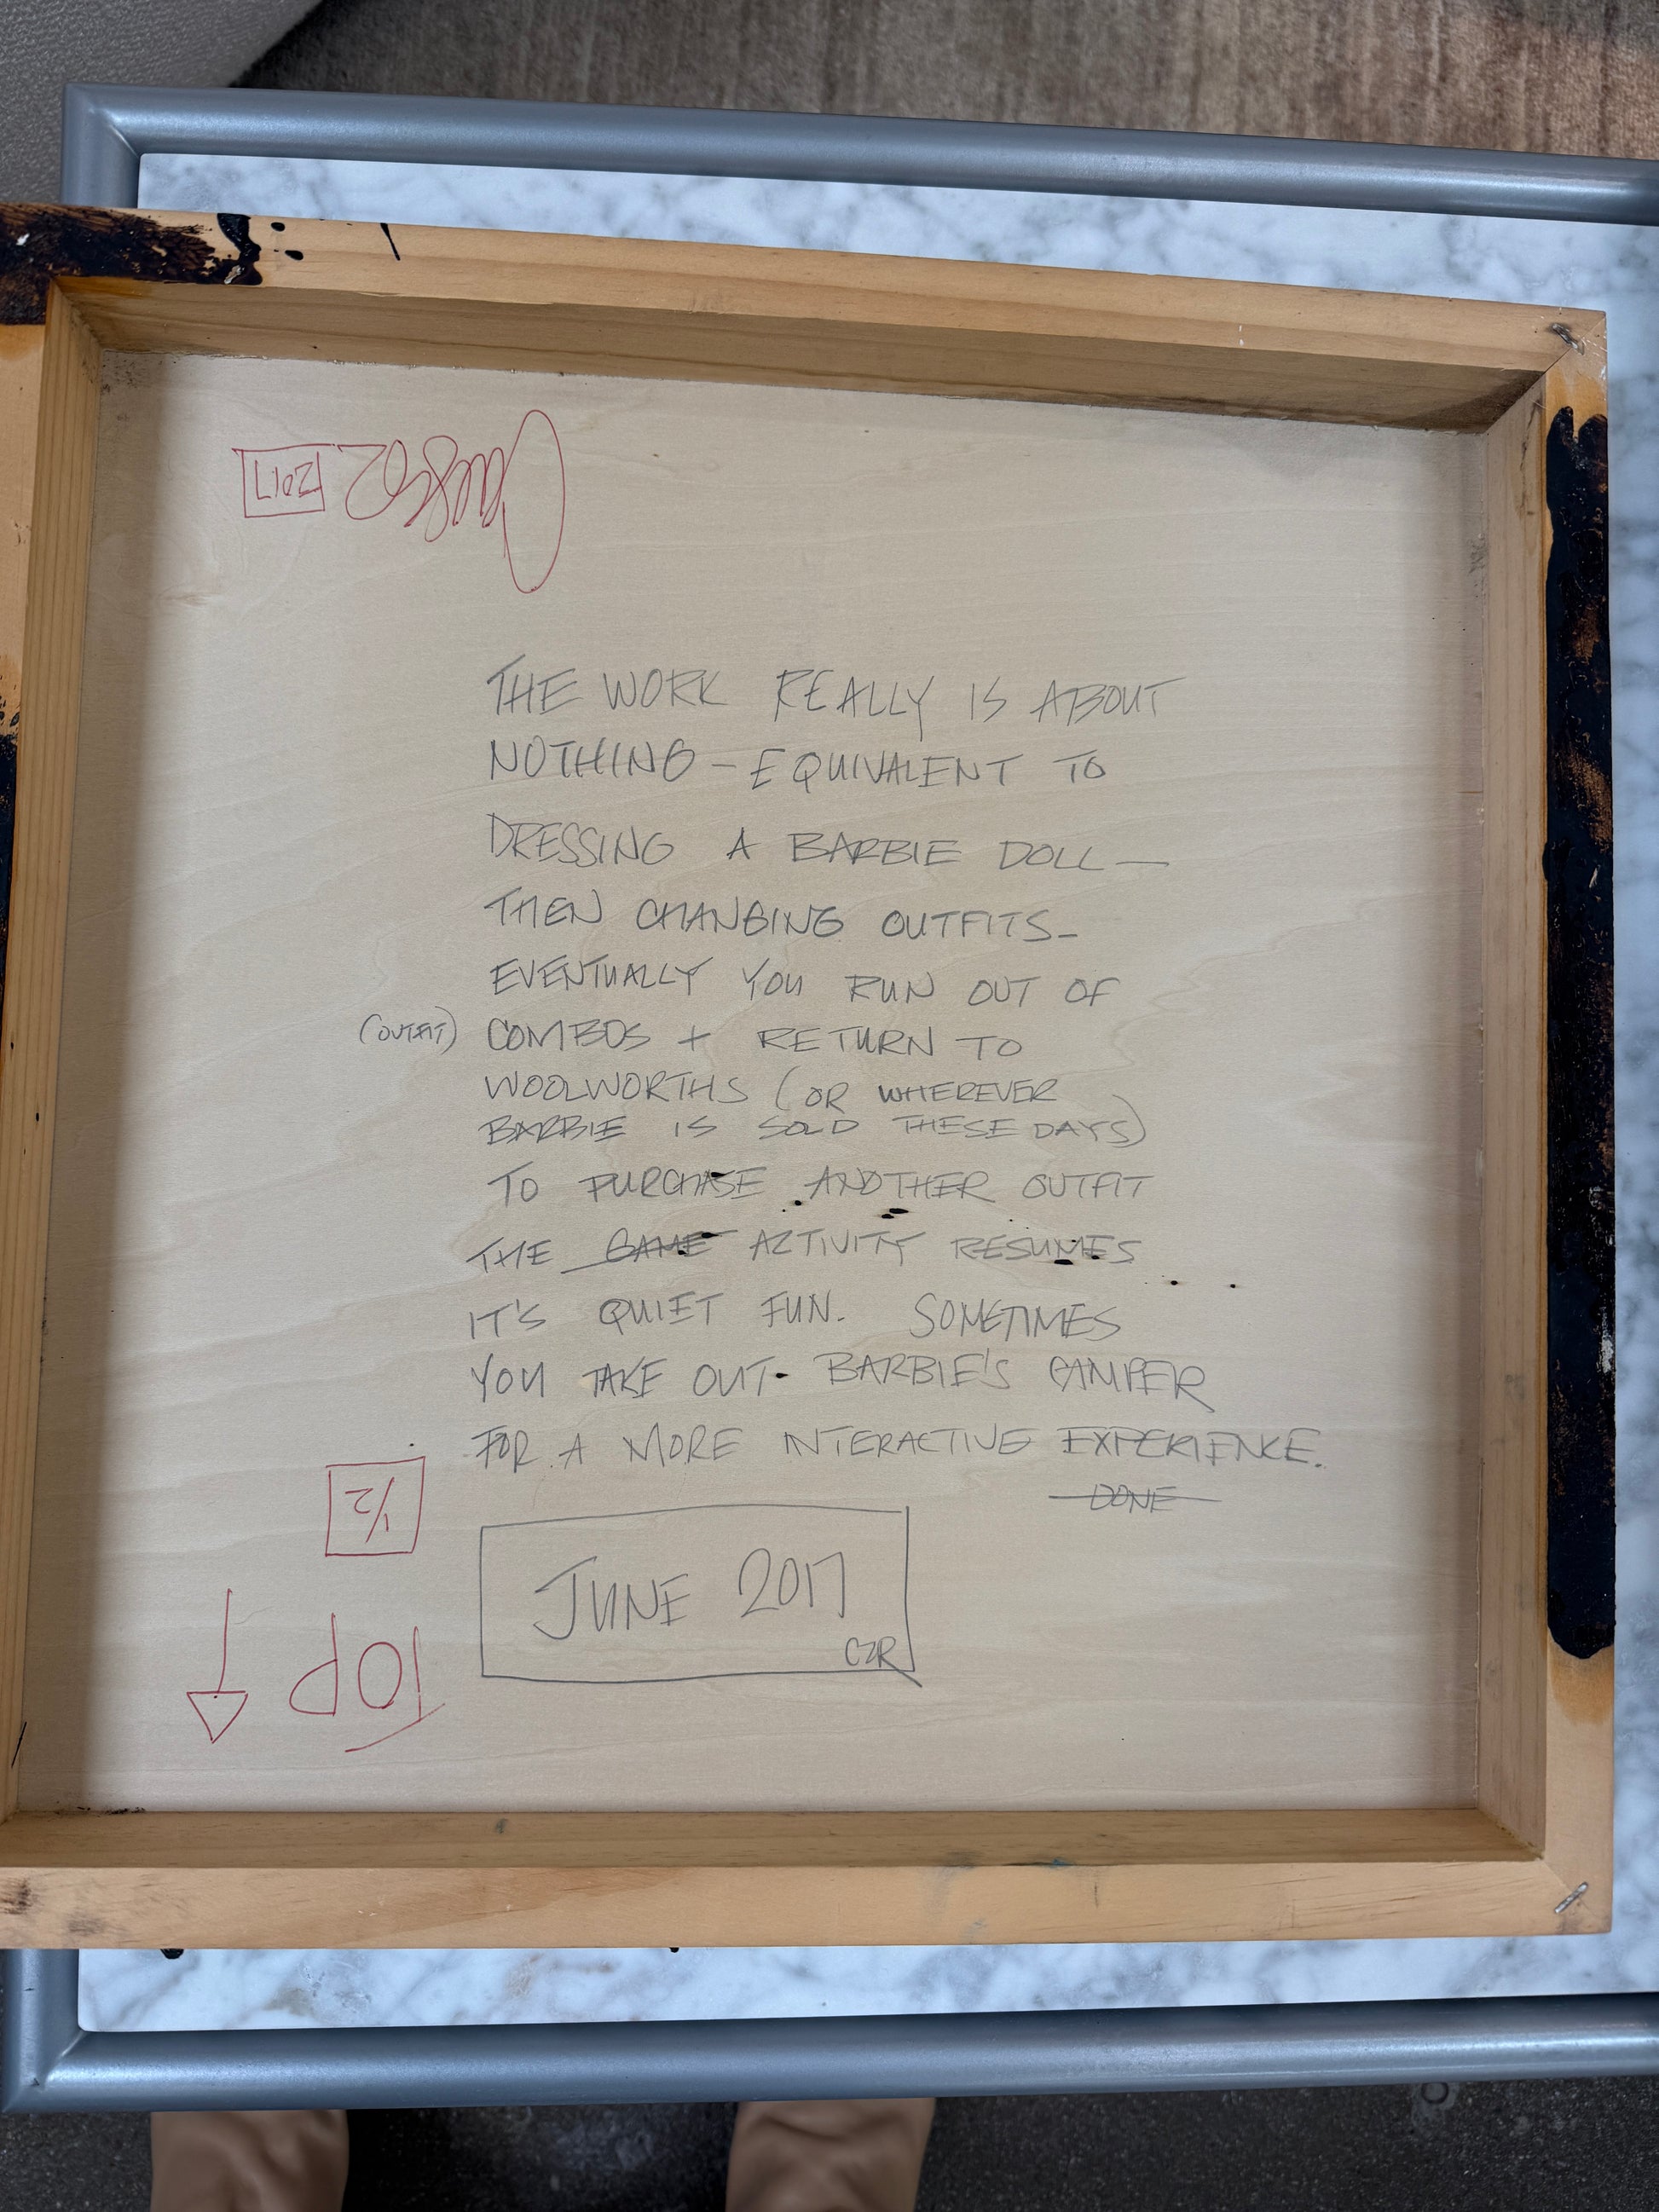 2017
THE WORK REALLY IS ABOUT
NOTHING – EQUIVALENT TO
DRESSING A BARBIE DOLL —
THEN CHANGING OUTFITS –
EVENTUALLY YOU RUN OUT OF
(OUTFIT) COMBOS + RETURN TO
WOOLWORTHS (OR WHEREVER
BARBIE IS SOLD THESE DAYS)
TO PURCHASE ANOTHER OUTFIT
THE GAME ACTIVITY RESUMES
IT'S QUIET FUN. SOMETIMES
YOU TAKE OUT BARBIE'S CAMPER
FOR A MORE INTERACTIVE EXPERIENCE.
DONE
1/2
JUNE 2017
CZR
TOP